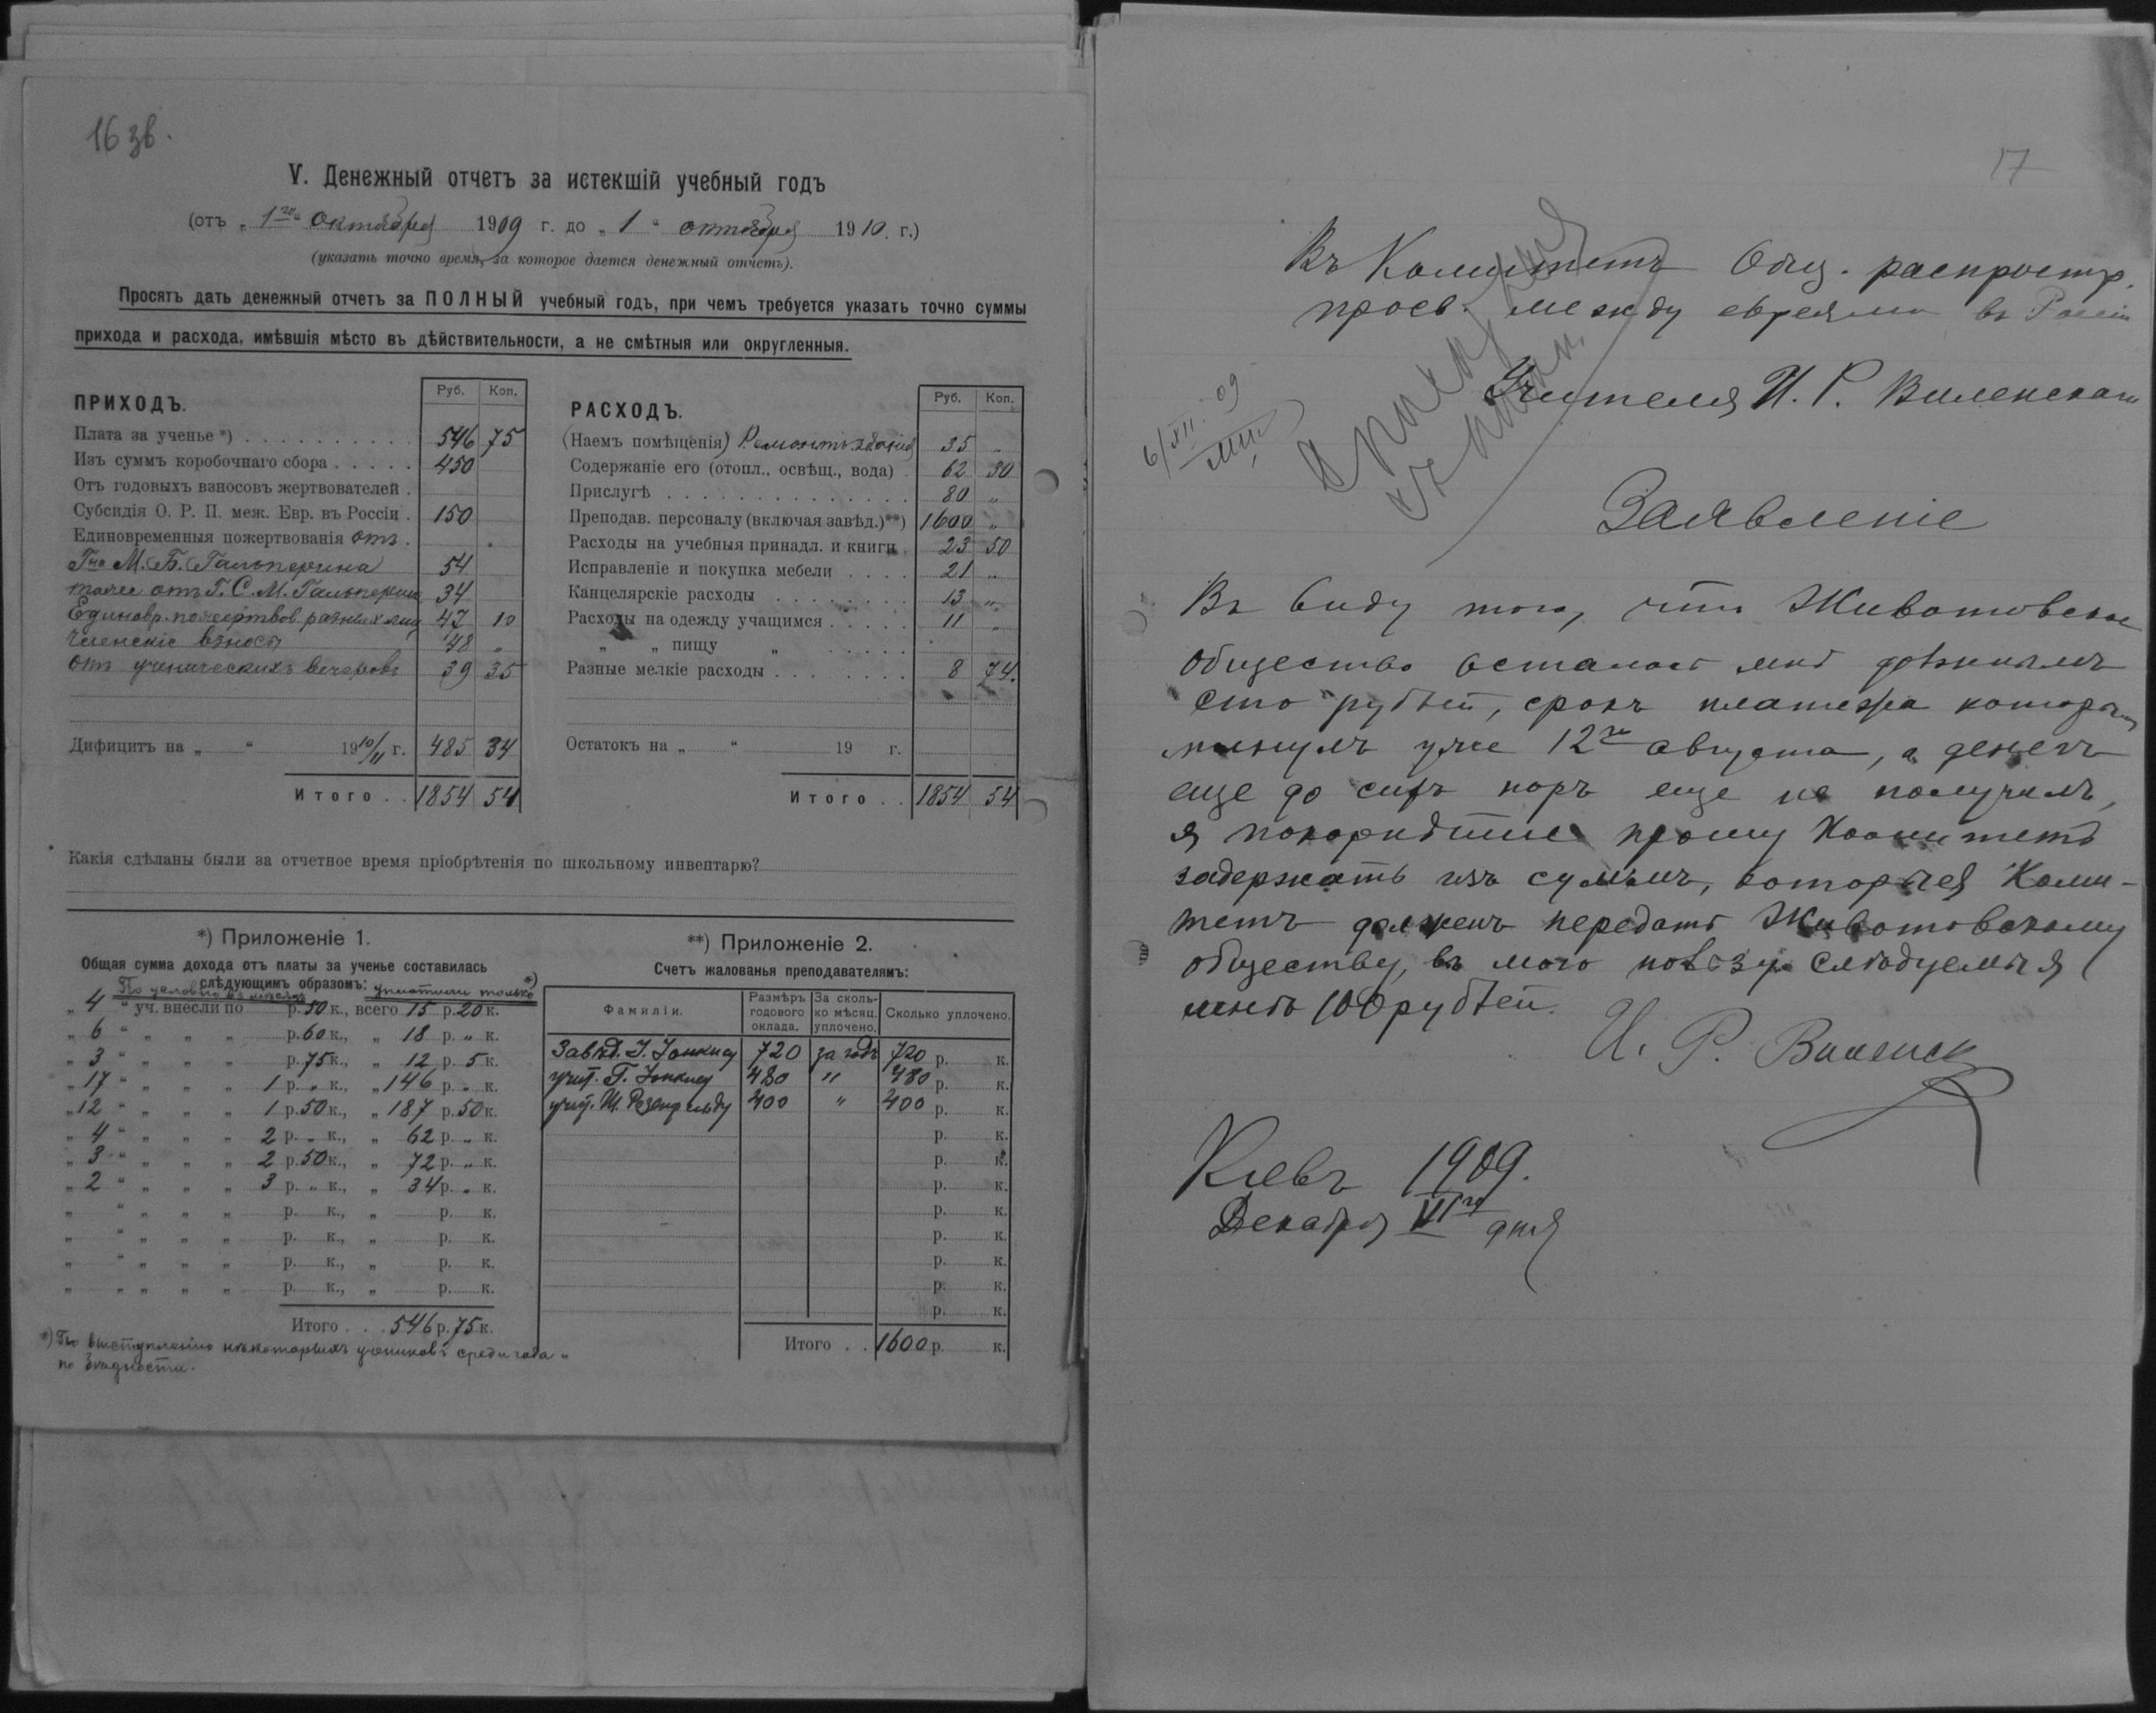 16 зв.
V. Денежный отчетъ за истекшій учебный годъ
(отъ „ 1го “ Октября 1909 г. до „ 1 “ октября 1910 г.)
(указать точно время, за которое дается денежный отчетъ).
Просятъ дать денежный отчетъ за ПОЛНЫЙ учебный годъ, при чемъ требуется указать точно суммы
прихода и расхода, имѣвшія мѣсто въ дѣйствительности, а не смѣтныя или округленныя.
ПРИХОДЪ. Руб. Коп.
Плата за ученье *) . . . . . . . . . . 546 75
Изъ суммъ коробочнаго сбора . . . . . 450
Отъ годовыхъ взносовъ жертвователей .
Субсидія О. Р. П. меж. Евр. въ Россіи . 150
Единовременныя пожертвованія отъ .
Гна М. Б. Гальперина 54
тоже отъ Г. С. М. Гальперин 34
Единовр. пожертвов. разныхъ лиц 47 10
Членскіе взносы 48 „
отъ ученическихъ вечеровъ 39 35
Дифицитъ на „ “ 1910/11 г. 485 34
Итого . . 1854 54
РАСХОДЪ. Руб. Коп.
(Наемъ помѣщенія) Ремонтъ зданія 35 „
Содержаніе его (отопл., освѣщ., вода) . 62 30
Прислугѣ . . . . . . . . . . . . . . 80 „
Преподав. персоналу (включая завѣд.)**) 1600 „
Расходы на учебныя принадл. и книги . 23 50
Исправленіе и покупка мебели . . . . 21 „
Канцелярскіе расходы . . . . . . . . 13 „
Расходы на одежду учащимся . . . . . 11 „
„ „ пищу „ . . . . .
Разные мелкіе расходы . . . . . . . . 8 74.
Остатокъ на „ “ 19 г.
Итого . . 1854 54
Какія сдѣланы были за отчетное время пріобрѣтенія по школьному инвентарю?
*) Приложеніе 1.
Общая сумма дохода отъ платы за ученье составилась
слѣдующимъ образомъ:
По условію въ мѣсяцъ уплатили только *)
„ 4 “ уч. внесли по р. 50 к., всего 15 р. 20 к.
„ 6 “ „ „ „ р. 60 к., „ 18 р. „ к.
„ 3 “ „ „ „ р. 75 к., „ 12 р. 5 к.
„ 17 “ „ „ „ 1 р. „ к., „ 146 р. „ к.
„ 12 “ „ „ „ 1 р. 50 к., „ 187 р. 50 к.
„ 4 “ „ „ „ 2 р. „ к., „ 62 р. „ к.
„ 3 “ „ „ „ 2 р. 50 к., „ 72 р. „ к.
„ 2 “ „ „ „ 3 р. „ к., „ 34 р. „ к.
„ “ „ „ „ р. к., „ р. к.
„ “ „ „ „ р. к., „ р. к.
„ “ „ „ „ р. к., „ р. к.
„ “ „ „ „ р. к., „ р. к.
Итого . . . 546 р. 75 к.
*) По выступленію нѣкоторыхъ учениковъ среди года
по бѣдности.
**) Приложеніе 2.
Счетъ жалованья преподавателямъ:
Фамиліи. Размѣръ годового оклада. За сколько мѣсяц. уплочено. Сколько уплочено.
Завѣд. 720 за годъ 720 р. к.
учит. Г. 480 „ 480 р. к.
учит. Ш. 400 „ 400 р. к.
р. к.
р. к.
р. к.
р. к.
р. к.
р. к.
р. к.
р. к.
Итого . . 1600 р. к.
17
Въ Комитетъ Общ. распростр.
просв. между евреями въ Россіи
Учителя И. Р. Виленскаго
6/XII 09
Заявленіе
Въ виду того, что Животовское
общество осталось мнѣ должнымъ
сто рублей, срокъ платежа которымъ
минулъ уже 12го августа, а денегъ
еще до сихъ поръ еще не получилъ,
я покорнѣйше прошу Комитетъ
задержать изъ суммъ, которыя Коми-
тетъ долженъ передать Животовскому
обществу, въ мою пользу слѣдуемыя
мнѣ 100 рублей.
И. Р. Виленск
Кіевъ 1909.
Декабря VIго дня